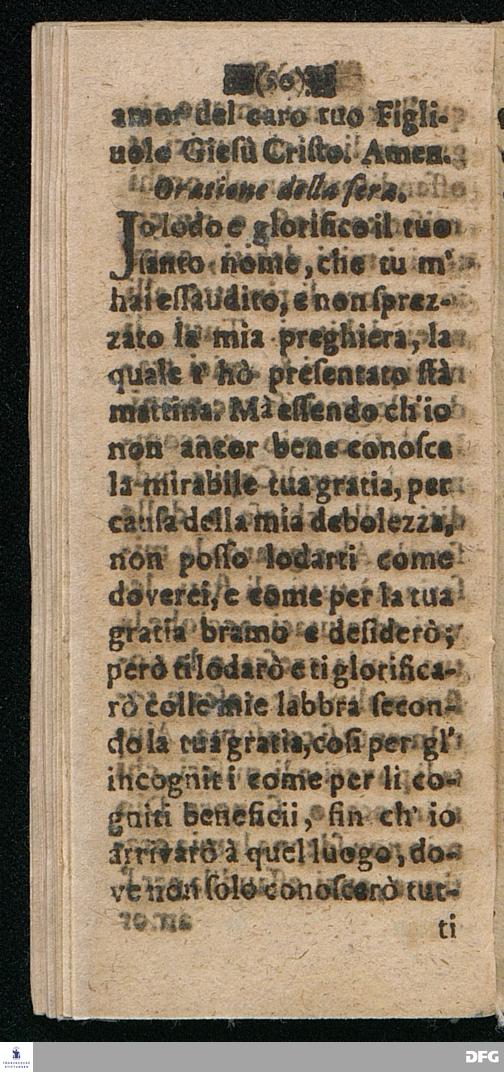 (50)
amor del caro tuo Figli-
uolo Giesù Cristo. Amen.
Oratione della sera.
Jo lodo e glorifico il tuo
santo nome, che tu m'
hai eſſaudito, e non ſprez-
zato la mia preghiera, la
quale t' hò preſentato ſtà
mattina. Mà eſſendo ch'io
non ancor bene conoſca
la mirabile tua gratia, per
cauſa della mia debolezza,
non poſſo lodarti come
doverei, e come per la tua
gratia bramo e deſiderò;
però ti lodarò e ti glorifica-
rò colle mie labbra ſecon-
do la tua gratia, coſi per gl'
incogniti come per li co-
gniti beneficii, fin ch' io
arrivarò à quel luogo, do-
ve non ſolo conoſcerò tut-
ti
FRANCKESCHE
STIFTUNGEN
DFG